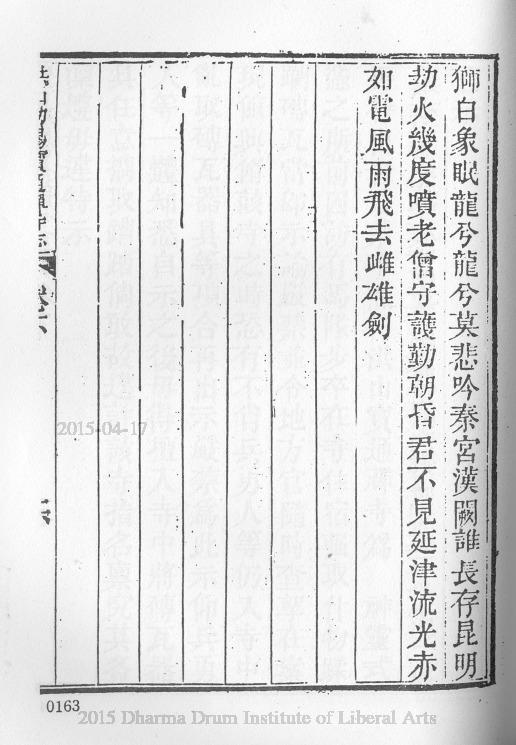 獅白象眠龍兮龍兮莫悲吟秦宮漢闕誰長存昆明
劫火幾度噴老僧守護勤朝昏君不見延津流光赤
如電風雨飛去雌雄劍
卷六
2015-04-17
0163
2015 Dharma Drum Institute of Liberal Arts